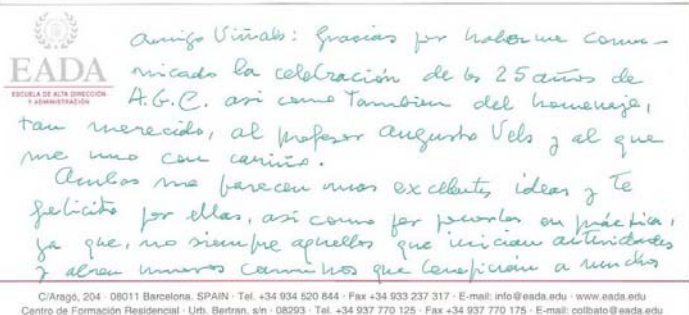 EADA
ESCUELA DE ALTA DIRECCIÓN
Y ADMINISTRACIÓN
Amigo Viñals: Gracias por haberme comu-
nicado la celebración de los 25 años de
A.G.C. asi como Tambien del homenaje,
tan merecido, al profesor Augusto Vels y al que
me uno con cariño.
Ambas me parecen unas excelentes ideas y Te
felicito por ellas, así como por ponerlas en práctica,
ya que, no siempre aquellos que inician actividades
y abren nuevos caminos que benefician a muchos
C/Aragó, 204 · 08011 Barcelona. SPAIN · Tel. +34 934 520 844 · Fax +34 933 237 317 · E-mail: info@eada.edu · www.eada.edu
Centro de Formación Residencial · Urb. Bertran, s/n · 08293 · Tel. +34 937 770 125 · Fax +34 937 770 175 · E-mail: collbato@eada.edu